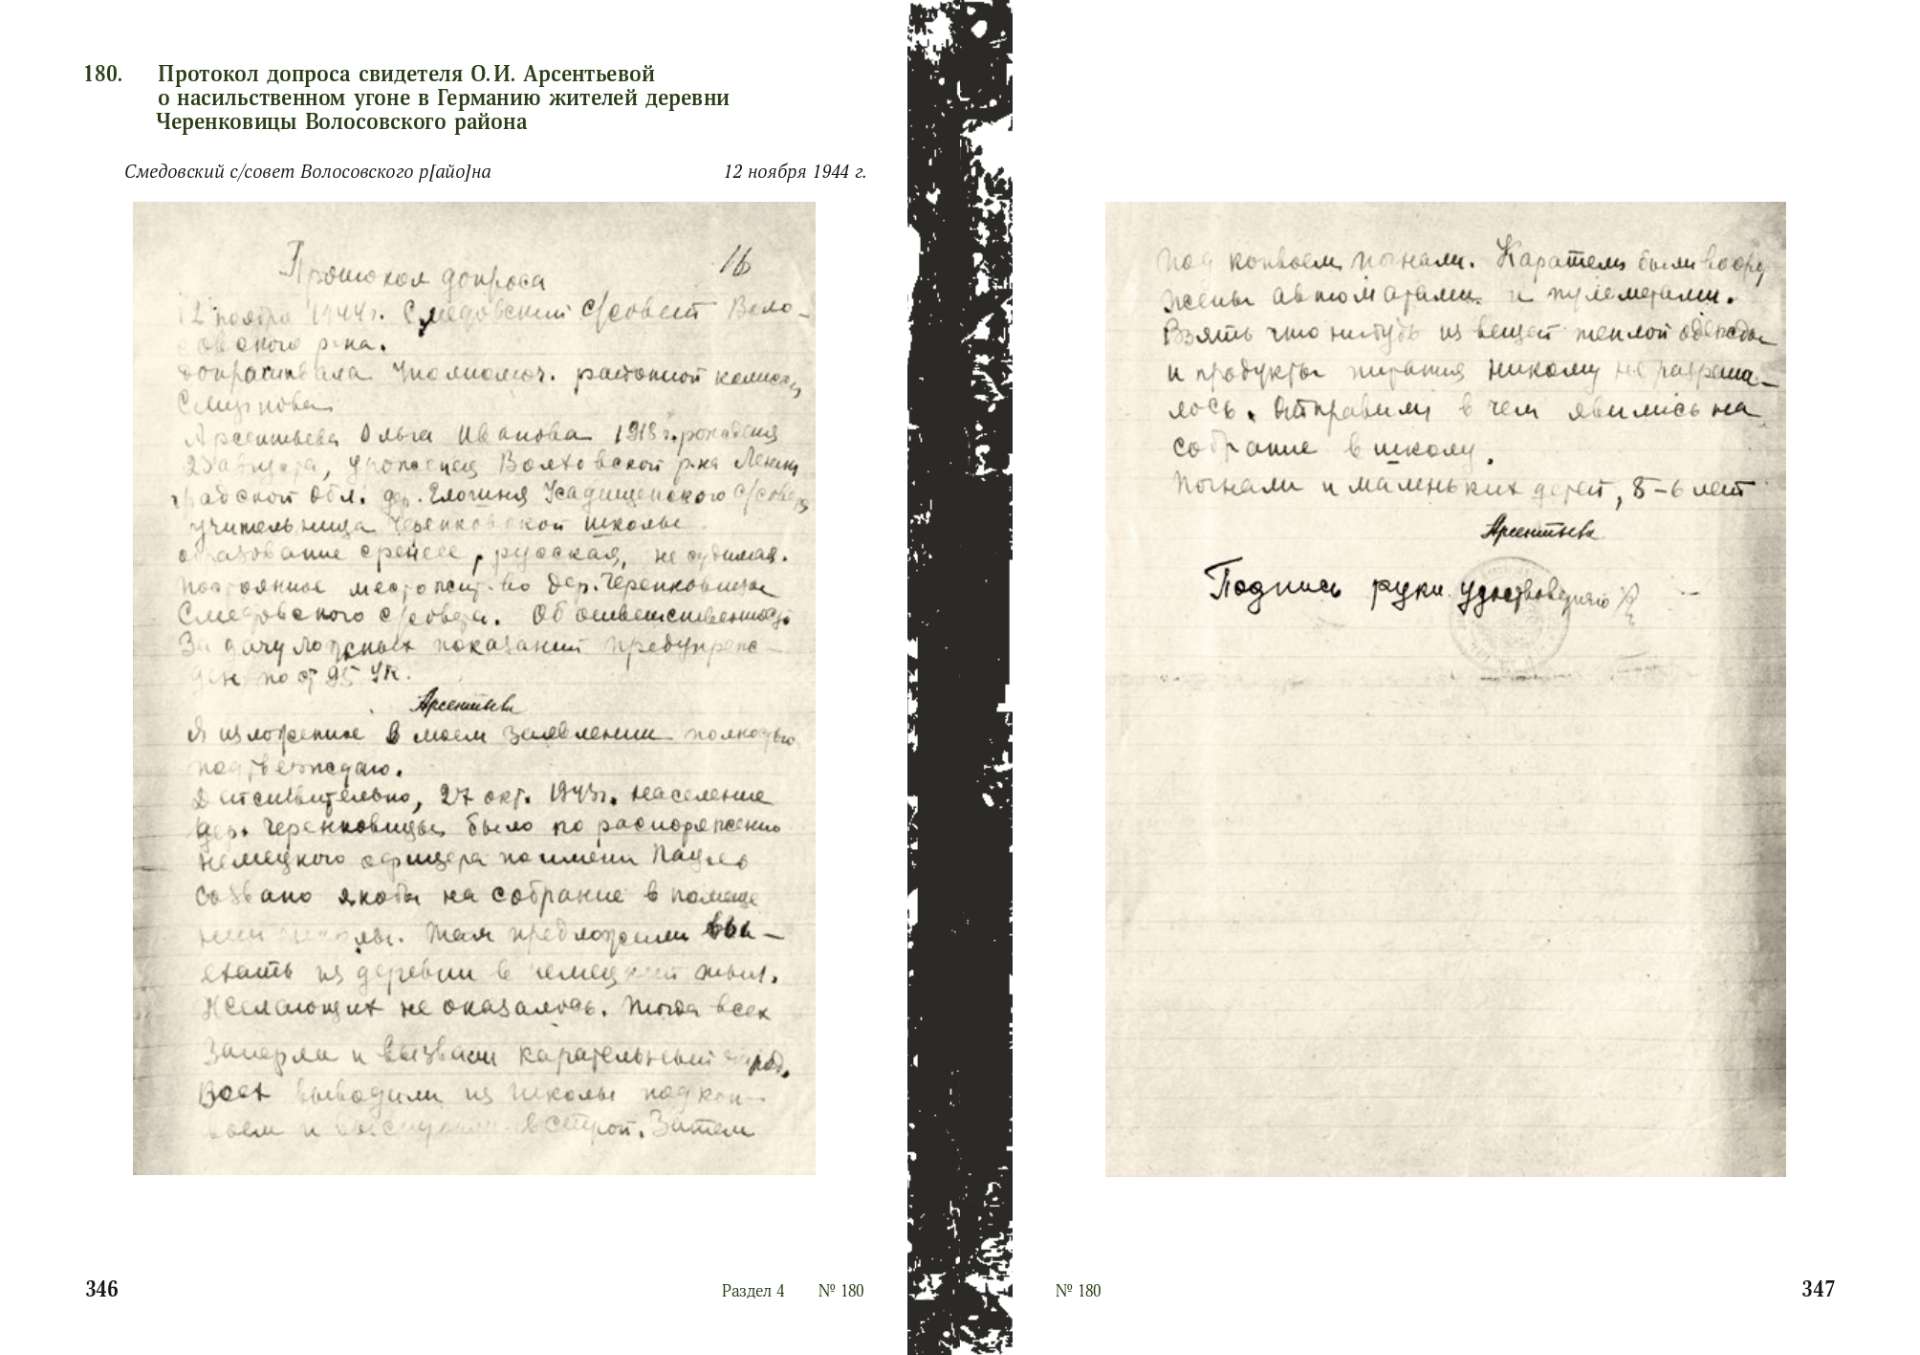 180. Протокол допроса свидетеля О. И. Арсентьевой
о насильственном угоне в Германию жителей деревни
Черенковицы Волосовского района
Смедовский с/совет Волосовского р[айо]на 12 ноября 1944 г.
16
Протокол допроса
12 ноября 1944 г. Смедовский с/совет Воло-
совского р-на.
допрашивала Уполномоч. районной комиссии
Смирнова
Арсентьева Ольга Ивановна 1918 г. рождения
23 августа, уроженец Волховской р-на Ленин
градской обл. дер. Глогиня Усадищенского с/совета
учительница Черенковской школы
образование среднее, русская, не судимая.
постоянное местожит-во дер. Черенковицы
Смедовского с/совета. Об ответственности
За дачу ложных показаний предупреж-
ден по ст 95 УК.
Арсентьева
Я изложенное в моем заявлении полностью
подтверждаю.
Действительно, 27 окт. 1943 г. население
дер. Черенковицы было по распоряжению
немецкого офицера по имени
созвано якобы на собрание в помеще
нии школы. Там предложили вы-
ехать из деревни в немецкий тыл.
Желающих не оказалось. Тогда всех
Заперли и вызвали карательный
Всех выводили из школы под кон-
воем и в строй. Затем
346
Раздел 4 № 180
под конвоем погнали. Каратели были воору
жены автоматами и пулеметами.
Взять что нибудь из вещей теплой одежды
и продукты питания никому не разреша-
лось. Отправили в чем явились на
собрание в школу.
Погнали и маленьких детей, 5-6 лет
Арсентьева
Подпись руки удостоверяю
№ 180
347